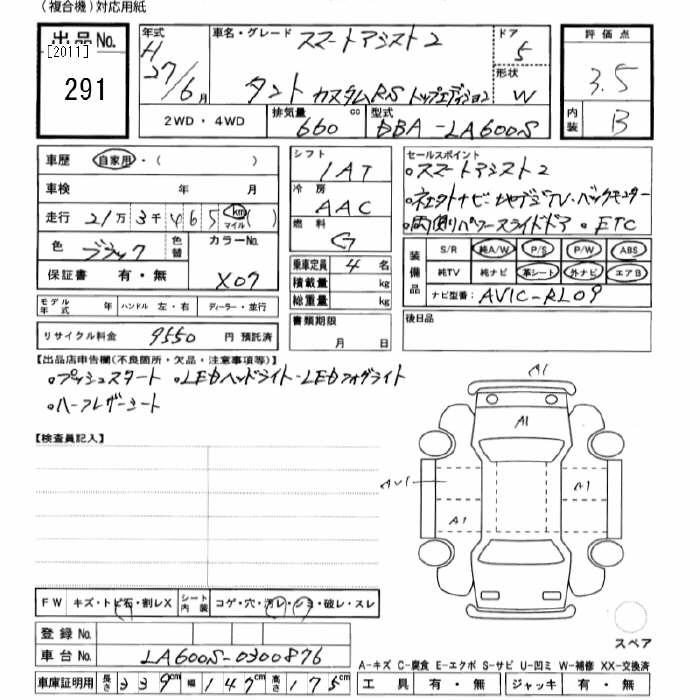 (複合機)対応用紙
出品No.
[2011]
291
年式
H
27/6月
車名・グレード スマートアシスト2
タント カスタムRS トップエディション
ドア
5
形状
W
評価点
3.5
内装 B
2WD・4WD
排気量
660 cc
型式
DBA-LA600S
車歴 自家用・( )
車検 年 月
走行 21万3千465 km マイル ( )
色 ブラック
色替
カラーNo.
X07
保証書 有・無
モデル年式 年 ハンドル 左・右 ディーラー・並行
リサイクル料金 9550 円 預託済
シフト
IAT
冷房
AAC
燃料
G
乗車定員 4 名
積載量 kg
総重量 kg
書類期限
月 日
セールスポイント
・スマートアシスト2
・ネクストナビ・地デジTV・バックモニター
・両側パワースライドドア ・ETC
装備品
S/R 純A/W P/S P/W ABS
純TV 純ナビ 革シート 外ナビ エアB
ナビ型番: AVIC-RL09
後日品
【出品店申告欄(不良箇所・欠品・注意事項等)】
・プッシュスタート ・LEDヘッドライト・LEDフォグライト
・ハーフレザーシート
【検査員記入】
A1
A1
AV1
A1
A1
FW キズ・トビ石・割レX
シート内装 コゲ・穴・汚レ・シミ・破レ・スレ
登録No.
車台No. LA600S-0300876
車庫証明用 長さ 339cm 幅 147cm 高さ 175cm
スペア
A-キズ C-腐食 E-エクボ S-サビ U-凹ミ W-補修 XX-交換済
工具 有・無 ジャッキ 有・無